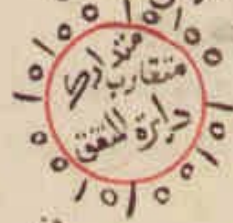 متدارك
متقارب
دايرة المتفق